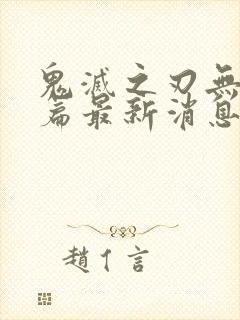 鬼滅之刃無
篇最新消息
趙亻言